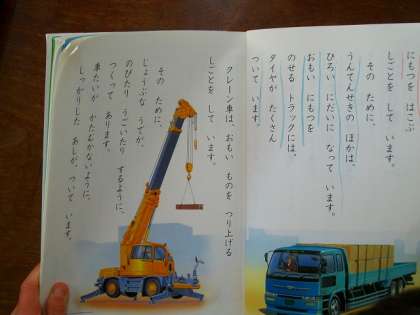 にもつを はこぶ
しごとを して います。
その ために、
うんてんせきの ほかは、
ひろい にだいに なって います。
おもい にもつを
のせる トラックには、
タイヤが たくさん
ついて います。
クレーン車は、おもい ものを つり上げる
しごとを して います。
その ために、
じょうぶな うでが、
のびたり うごいたり するように、
つくって あります。
車たいが かたむかないように、
しっかりした あしが、ついて います。